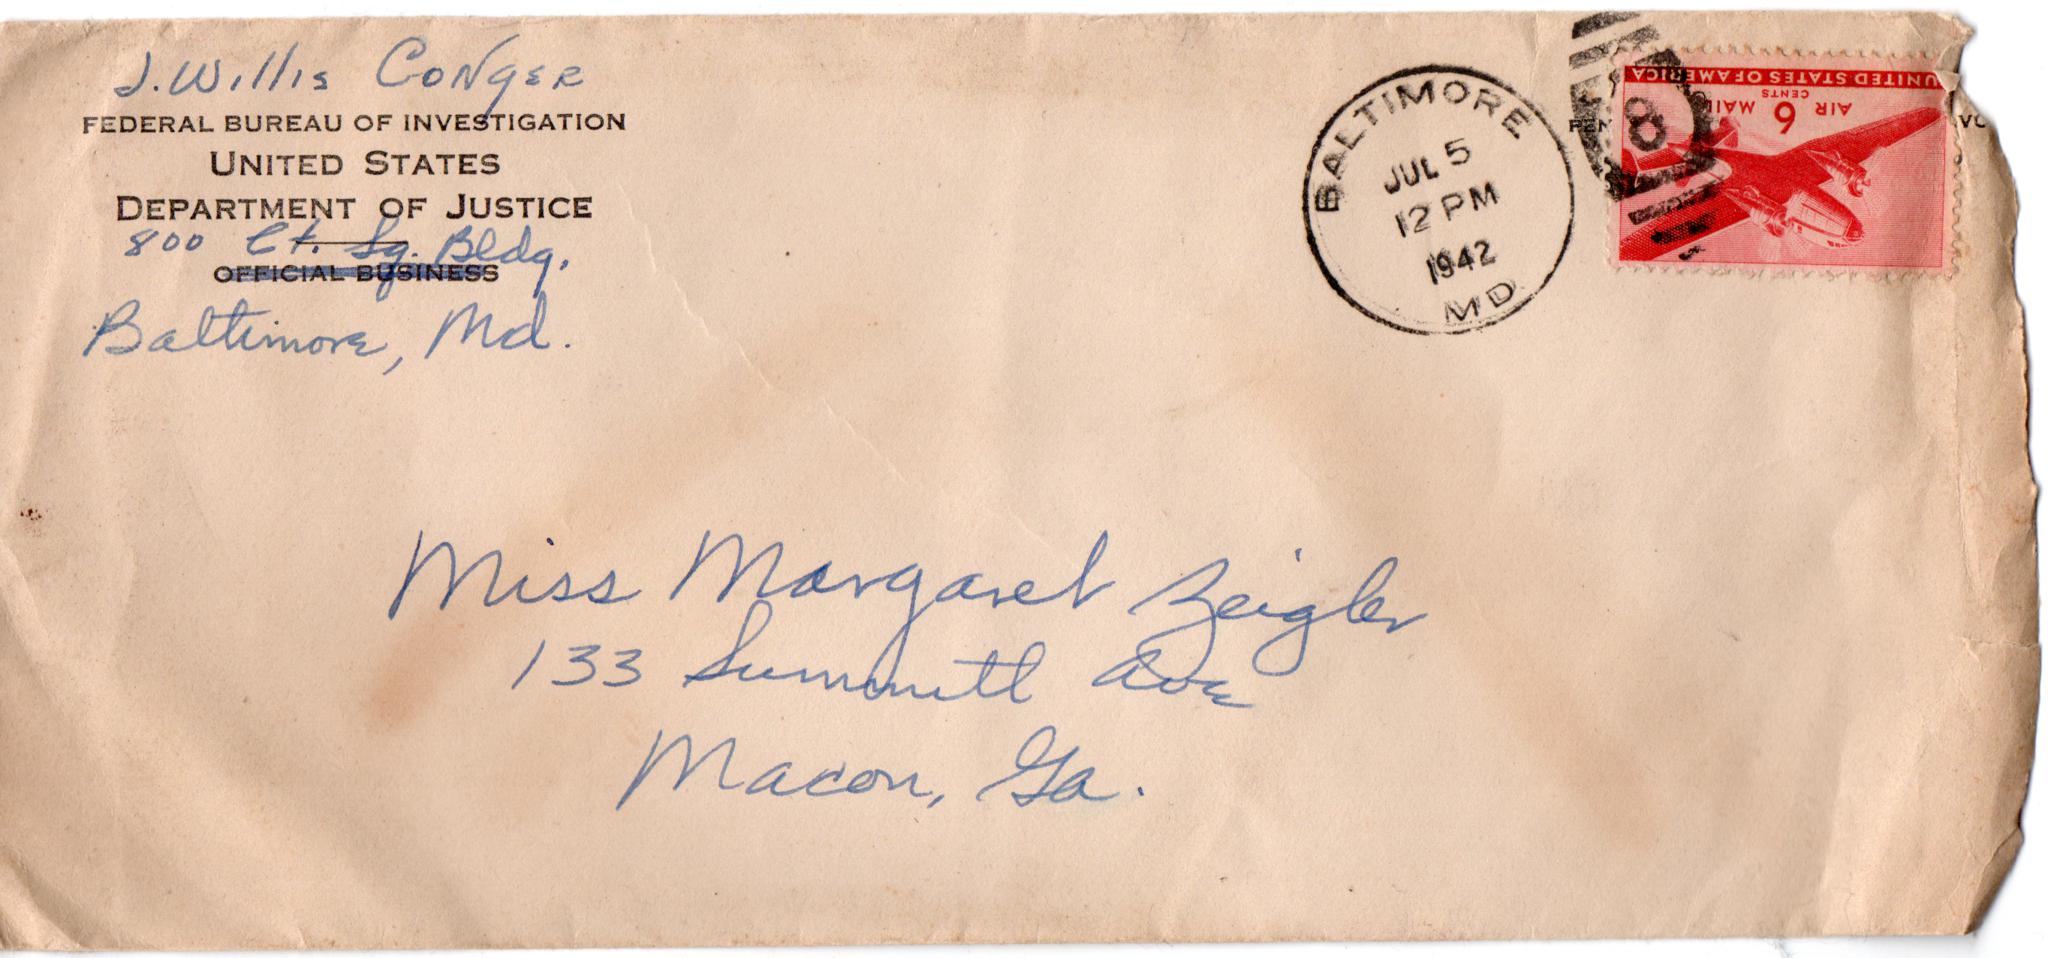 J. Willis Conger
FEDERAL BUREAU OF INVESTIGATION
UNITED STATES
DEPARTMENT OF JUSTICE
800 Ct. Sq. Bldg.
OFFICIAL BUSINESS
Baltimore, Md.
BALTIMORE
JUL 5
12 PM
1942
MD.
8
UNITED STATES OF AMERICA
AIR 6 MAIL
CENTS
Miss Margaret Zeigler
133 Summitt Ave
Macon, Ga.